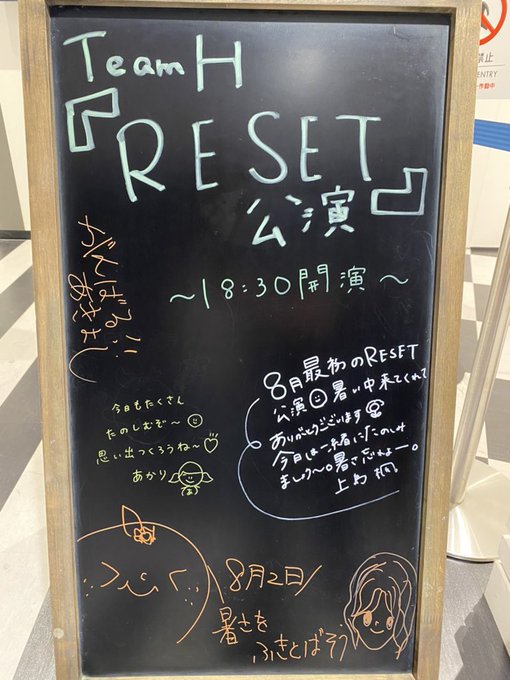 Team H
『RESET
公演』
〜18:30開演〜
がんばる!!
あきよし
今日もたくさん
たのしむぞ〜
思い出つくろうね〜
あかり
(あ)
8月最初のRESET
公演 暑い中来てくれて
ありがとうございます
今日は一緒にたのしみ
ましょう〜。暑さだねよー。
上島楓
8月2日
暑さを
ふきとばそう
禁止
ENTRY
作動中